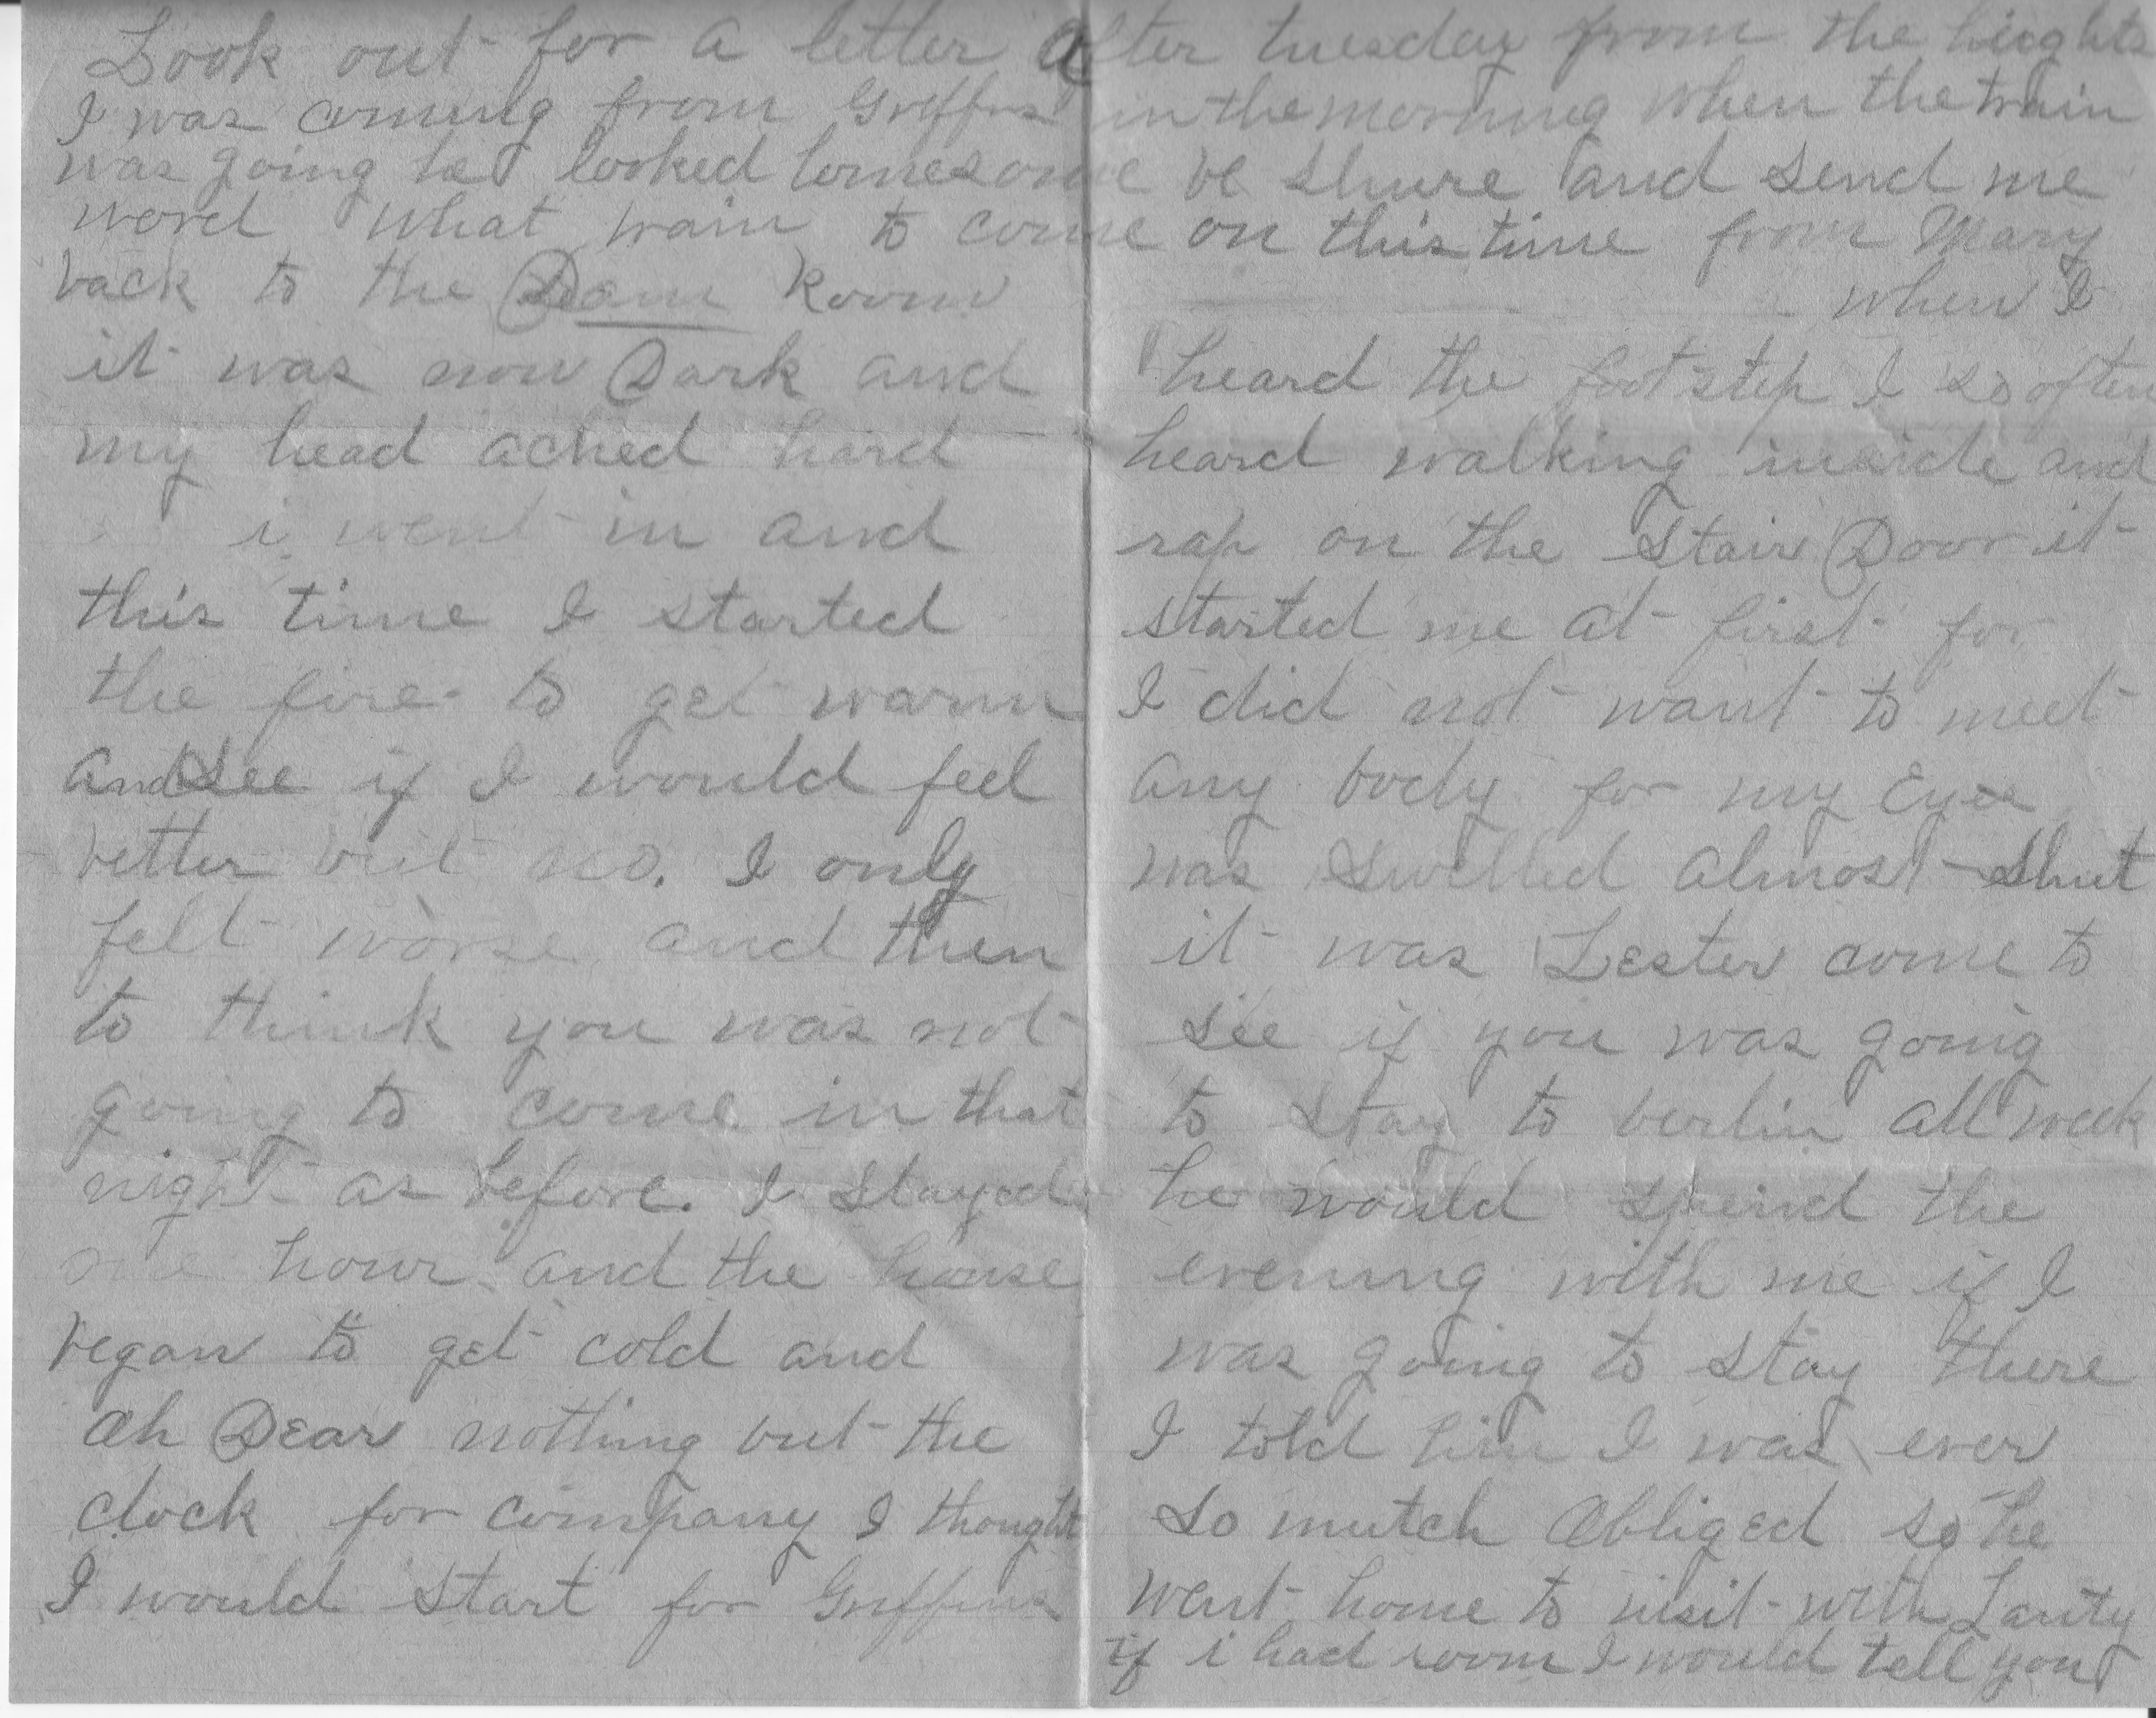 Look out for a letter after tuesday from the hieghts
I was coming from Griffins in the morning when the train
was going he looked lonesome be shure and send me
word what train to come on this time from Mary
back to the Dam Room
it was now Dark and
my head ached hard
i went in and
this time I started
the fire to get warm
and see if I would feel
better but no. I only
felt worse and then
to think you was not
going to come in that
night as before. I stayed
one hour and the house
began to get cold and
ah Dear nothing but the
clock for company I thought
I would start for Griffins
when I
heard the footstep I so often
heard walking inside and
rap on the Stair Door it
started me at first for
I did not want to meet
any body for my Eyes
was swelled almost shut
it was Lester come to
see if you was going
to stay to berlin all week
he would spend the
evening with me if I
was going to stay there
I told him I was ever
so mutch Obliged so he
went home to visit with
if i had room I would tell you